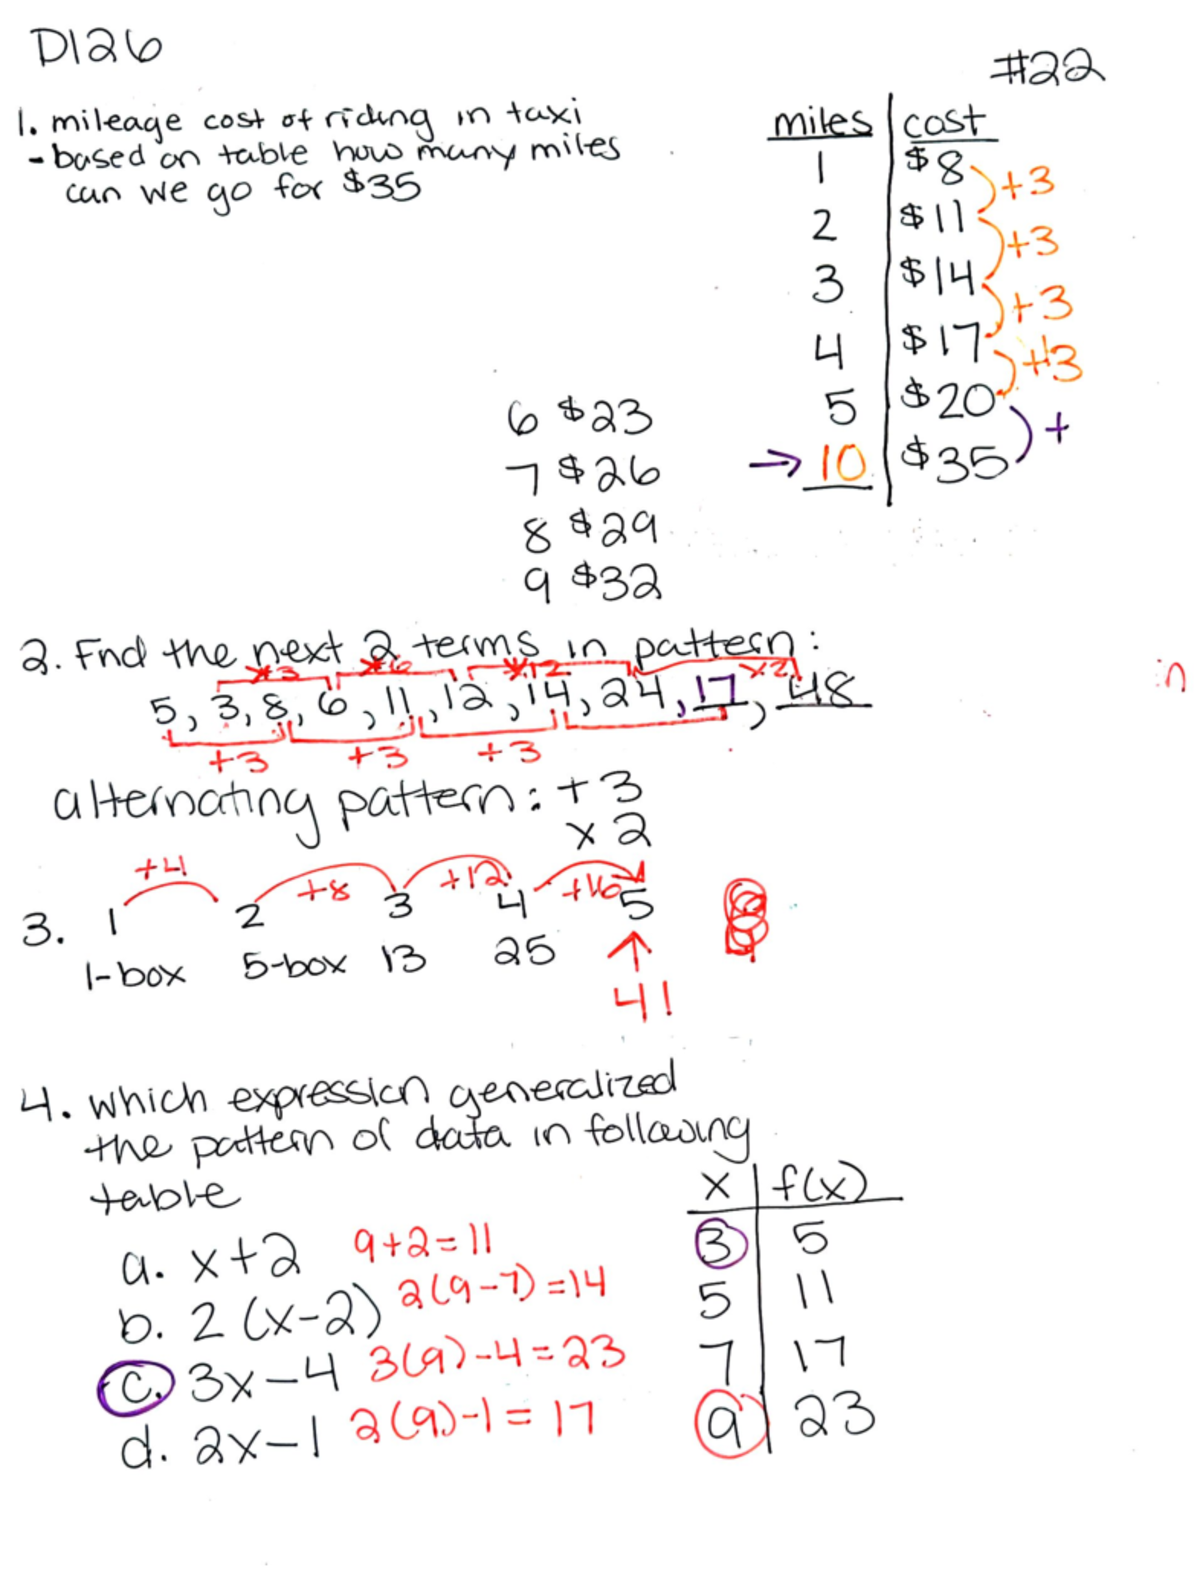 D126
#22
1. mileage cost of riding in taxi
- based on table how many miles
can we go for $35
miles cost
1 $8
+3
2 $11
+3
3 $14
+3
4 $17
+3
5 $20
+
→ 10 $35
6 $23
7 $26
8 $29
9 $32
2. Find the next 2 terms in pattern:
*3 *6 *12 x2
5, 3, 8, 6, 11, 12, 14, 24, 17, 48
+3 +3 +3
in
alternating pattern: +3
x 2
+4 +8 +12 +16
3. 1 2 3 4 5
1-box 5-box 13 25 ↑
41
4. which expression generalized
the pattern of data in following
table
x f(x)
3 5
5 11
7 17
9 23
a. x+2 9+2=11
b. 2(x-2) 2(9-7)=14
c. 3x-4 3(9)-4=23
d. 2x-1 2(9)-1=17